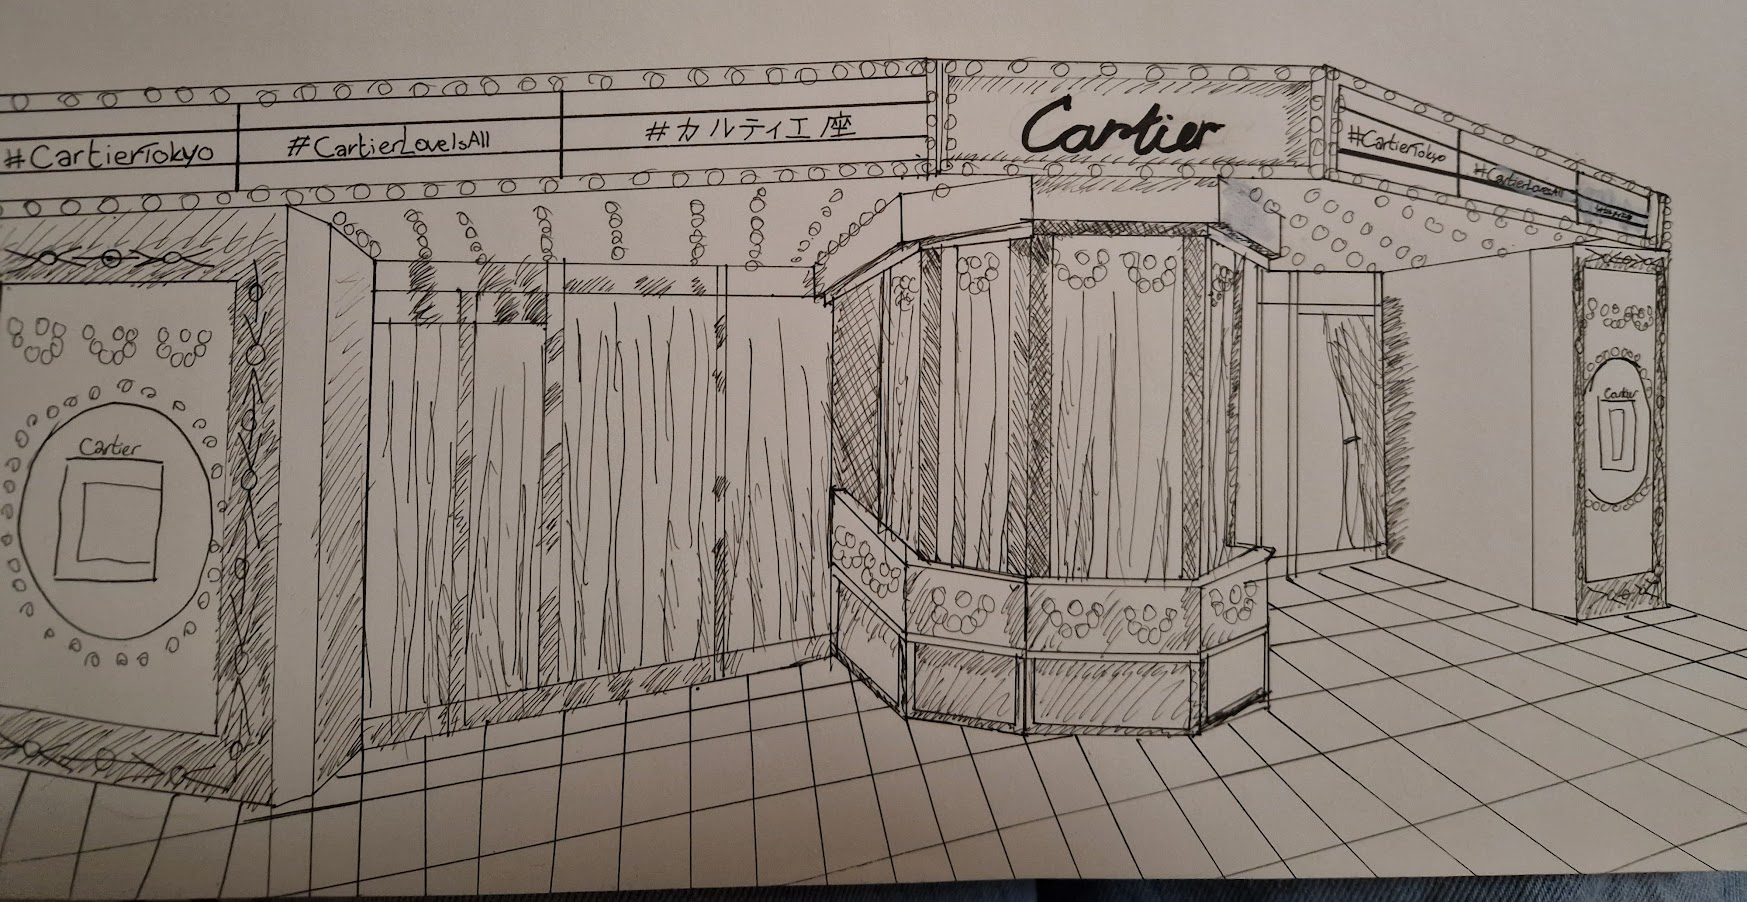 #CartierTokyo
#CartierLoveIsAll
#カルティエ座
Cartier
#CartierTokyo
#CartierLoveIsAll
Cartier
Cartier